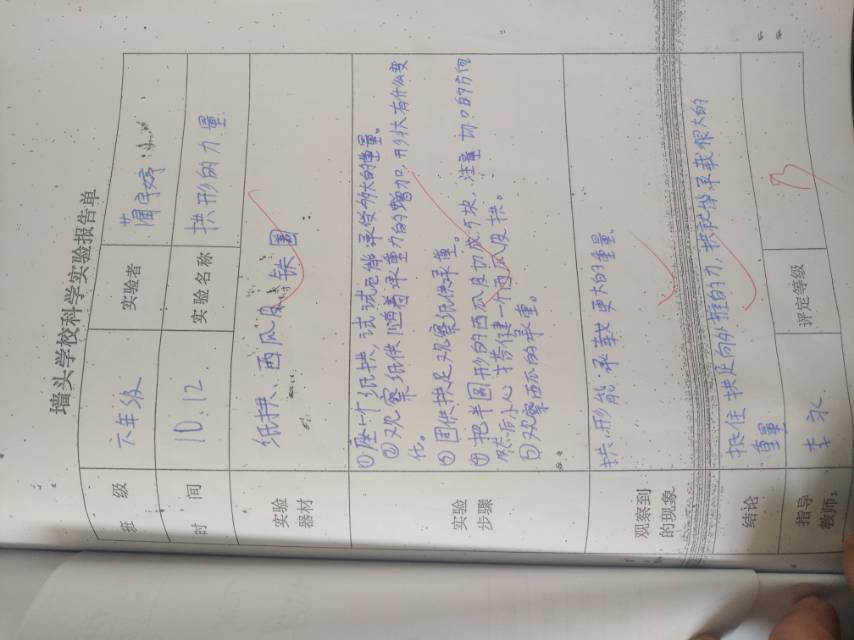 墙头学校科学实验报告单
班级 六年级 实验者
时间 10.12 实验名称 拱形的力量
实验器材 纸拱、西瓜皮、铁圈
实验步骤
①座一个纸拱,试试它能承受多大的重量。
②观察纸供随着承重力的增加,形状有什么变
化。
③固供拱足观察纸供承重。
④把半圆形的西瓜皮切成 块,注意切口的方向
然后小心搭建一个西瓜皮拱。
⑤观察西瓜的承重。
观察到的现象 拱形能承载更大的重量
结论 抵住拱足向外推的力,拱就能承载很大的
重量
指导教师: 李 评定等级